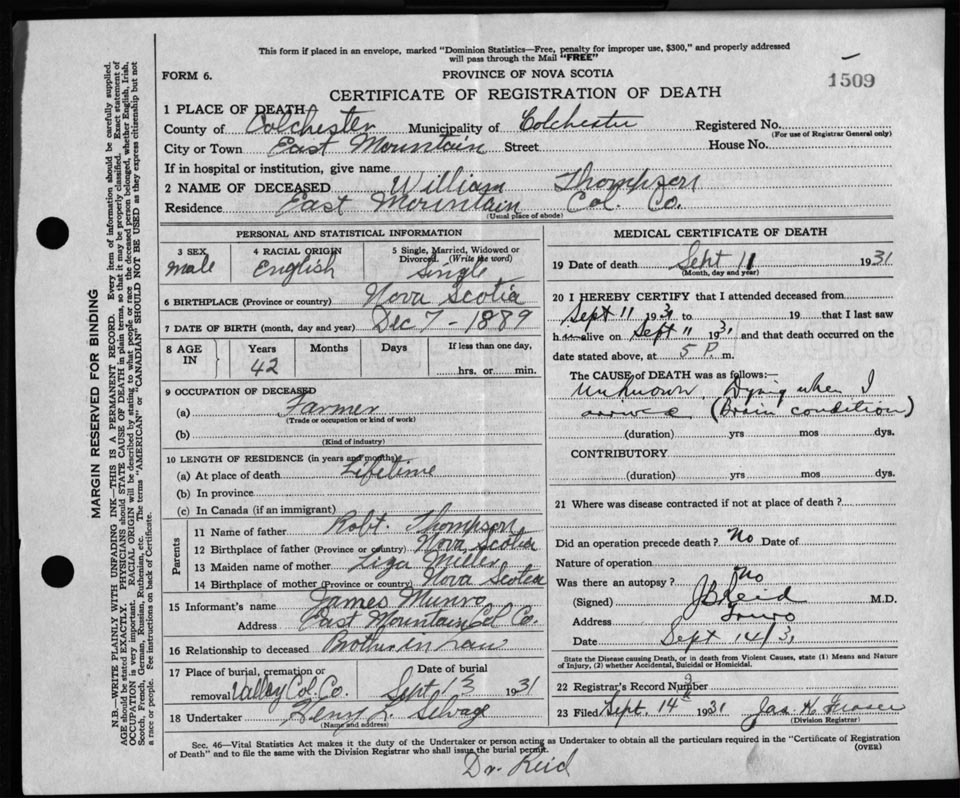 This form if placed in an envelope, marked "Dominion Statistics—Free, penalty for improper use, $300," and properly addressed
will pass through the Mail "FREE"
FORM 6.
PROVINCE OF NOVA SCOTIA
1509
CERTIFICATE OF REGISTRATION OF DEATH
1 PLACE OF DEATH
County of Colchester Municipality of Colchester Registered No.
(For use of Registrar General only)
City or Town East Mountain Street House No.
If in hospital or institution, give name
2 NAME OF DECEASED William Thompson
Residence East Mountain Col. Co.
(Usual place of abode)
PERSONAL AND STATISTICAL INFORMATION
3 SEX 4 RACIAL ORIGIN 5 Single, Married, Widowed or
Divorced (Write the word)
male English Single
6 BIRTHPLACE (Province or country) Nova Scotia
7 DATE OF BIRTH (month, day and year) Dec 7 - 1889
8 AGE IN Years Months Days If less than one day,
42 hrs. or min.
9 OCCUPATION OF DECEASED
(a) Farmer
(Trade or occupation or kind of work)
(b)
(Kind of industry)
10 LENGTH OF RESIDENCE (in years and months)
(a) At place of death Lifetime
(b) In province
(c) In Canada (if an immigrant)
Parents
11 Name of father Robt. Thompson
12 Birthplace of father (Province or country) Nova Scotia
13 Maiden name of mother Liza Miller
14 Birthplace of mother (Province or country) Nova Scotia
15 Informant's name James Munro
Address East Mountain Col Co.
16 Relationship to deceased Brother in Law
17 Place of burial, cremation or Date of burial
removal Valley Col. Co. Sept 13 1931
18 Undertaker Henry L. Selvage
(Name and address)
MEDICAL CERTIFICATE OF DEATH
19 Date of death Sept 11 1931
(Month, day and year)
20 I HEREBY CERTIFY that I attended deceased from
Sept 11 1931 to 19 that I last saw
h alive on Sept 11 1931 and that death occurred on the
date stated above, at 5 P. m.
The CAUSE of DEATH was as follows:—
Unknown. Dying when I
arrived (Brain condition)
(duration) yrs mos dys.
CONTRIBUTORY
(duration) yrs mos dys.
21 Where was disease contracted if not at place of death?
Did an operation precede death? No Date of
Nature of operation
Was there an autopsy? No
(Signed) J B Reid M.D.
Address Truro
Date Sept 14/31
State the Disease causing Death, or in death from Violent Causes, state (1) Means and Nature
of Injury, (2) whether Accidental, Suicidal or Homicidal.
22 Registrar's Record Number
23 Filed Sept. 14 1931 Jas. K. Fraser
(Division Registrar)
Sec. 46—Vital Statistics Act makes it the duty of the Undertaker or person acting as Undertaker to obtain all the particulars required in the "Certificate of Registration
of Death" and to file the same with the Division Registrar who shall issue the burial permit.
(OVER)
Dr. Reid
MARGIN RESERVED FOR BINDING
N.B.—WRITE PLAINLY WITH UNFADING INK—THIS IS A PERMANENT RECORD. Every item of information should be carefully supplied.
AGE should be stated EXACTLY. PHYSICIANS should STATE CAUSE OF DEATH in plain terms, so that it may be properly classified. Exact statement of
OCCUPATION is very important. RACIAL ORIGIN will be described by stating to what people or race the deceased person belonged, whether English, Irish,
Scotch, French, German, Russian, Ruthenian, etc. The terms "AMERICAN" or "CANADIAN" SHOULD NOT BE USED as they express citizenship but not
a race or people. See instructions on back of Certificate.